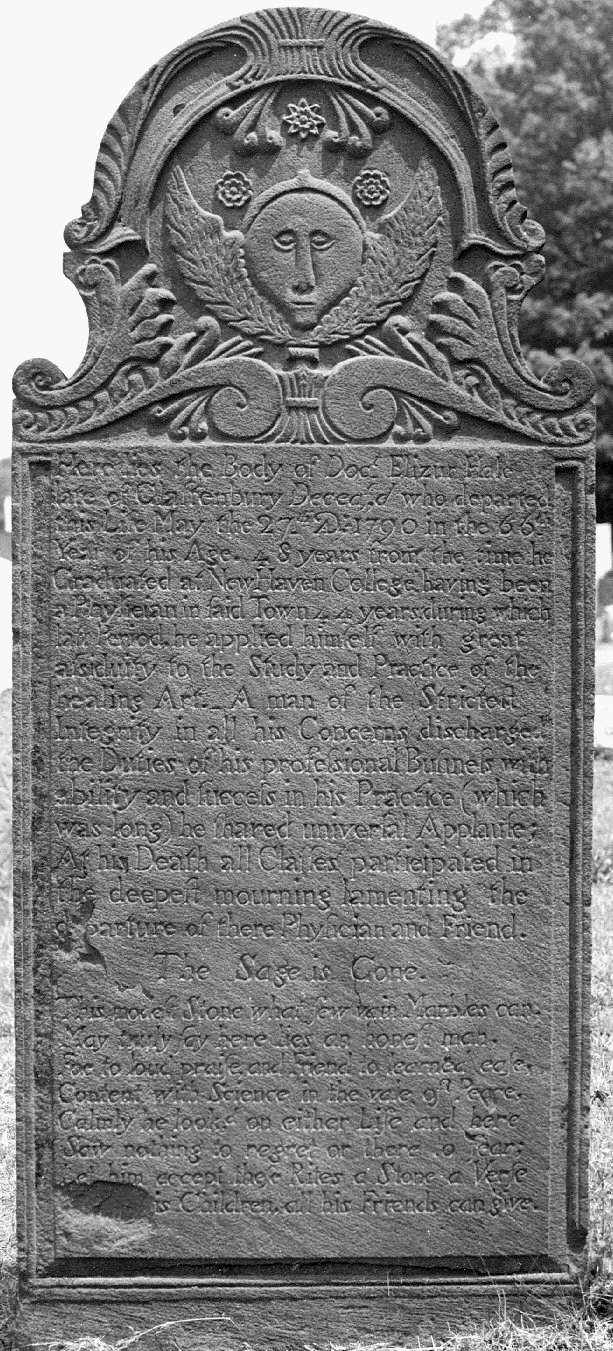 Here lies the Body of Doct Elizur Hale
late of Glaſtenbury Deceas,d who departed
this Life May the 27th AD:1790 in the 66th
Year of his Age. 48 years from the time he
Graduated at NewHaven College, having been
a Phyſician in ſaid Town 44 years, during which
laſt Period, he applied himſelf with great
aſsiduity to the Study and Practice of the
healing Art._A man of the Stricteſt
Integrity in all his Concerns diſcharged
the Duties of his profeſsional Buſineſs with
ability and ſucceſs in his Practice (which
was long) he ſhared univerſal Applauſe;
At his Death all Claſſes participated in
the deepeſt mourning lamenting the
departure of there Phyſician and Friend.
The Sage is Gone.
This modeſt Stone what few vain Marbles can.
May truly ſay here lies an honeſt man.
Foe to loud praiſe, and Friend to learned eaſe,
Content with Science in the vale of Peace.
Calmly he look,d on either Life and here
Saw nothing to regret or there to fear;
Let him accept theſe Rites a Stone a Verſe
is Children, all his Friends can give.